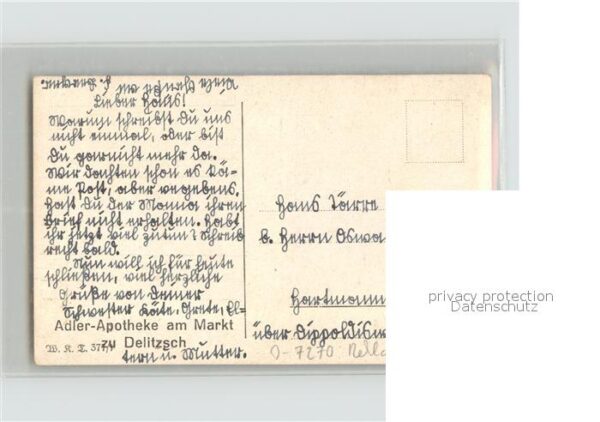 Lieber Hans!
Warum schreibst Du uns
nicht einmal, oder bist
Du garnicht mehr da.
Wir dachten schon es kä-
me Post, aber vergebens.
Hast Du der Mama ihren
Brief nicht erhalten. Habt
ihr jetzt viel zutun? Schreib
recht bald.
Nun will ich für heute
schließen, viel herzliche
Grüße von Deiner
Schwester Käte, Grete, El-
tern u. Mutter.
Adler-Apotheke am Markt
zu Delitzsch
W. R. L. 377
Hans Tärre
b. Herrn Oswa
Hartmann
über Dippoldisw
O-7270
privacy protection
Datenschutz